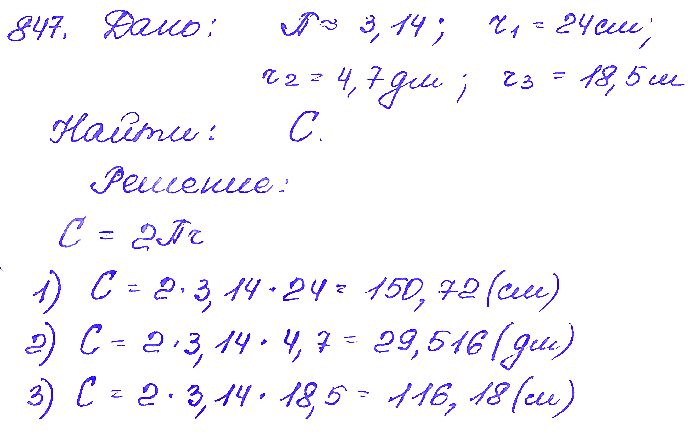 847. Дано: П ≈ 3,14; r₁ = 24 см;
r₂ = 4,7 дм; r₃ = 18,5 м
Найти: С.
Решение:
С = 2Пr
1) С = 2·3,14·24 = 150,72 (см)
2) С = 2·3,14·4,7 = 29,516 (дм)
3) С = 2·3,14·18,5 = 116,18 (м)